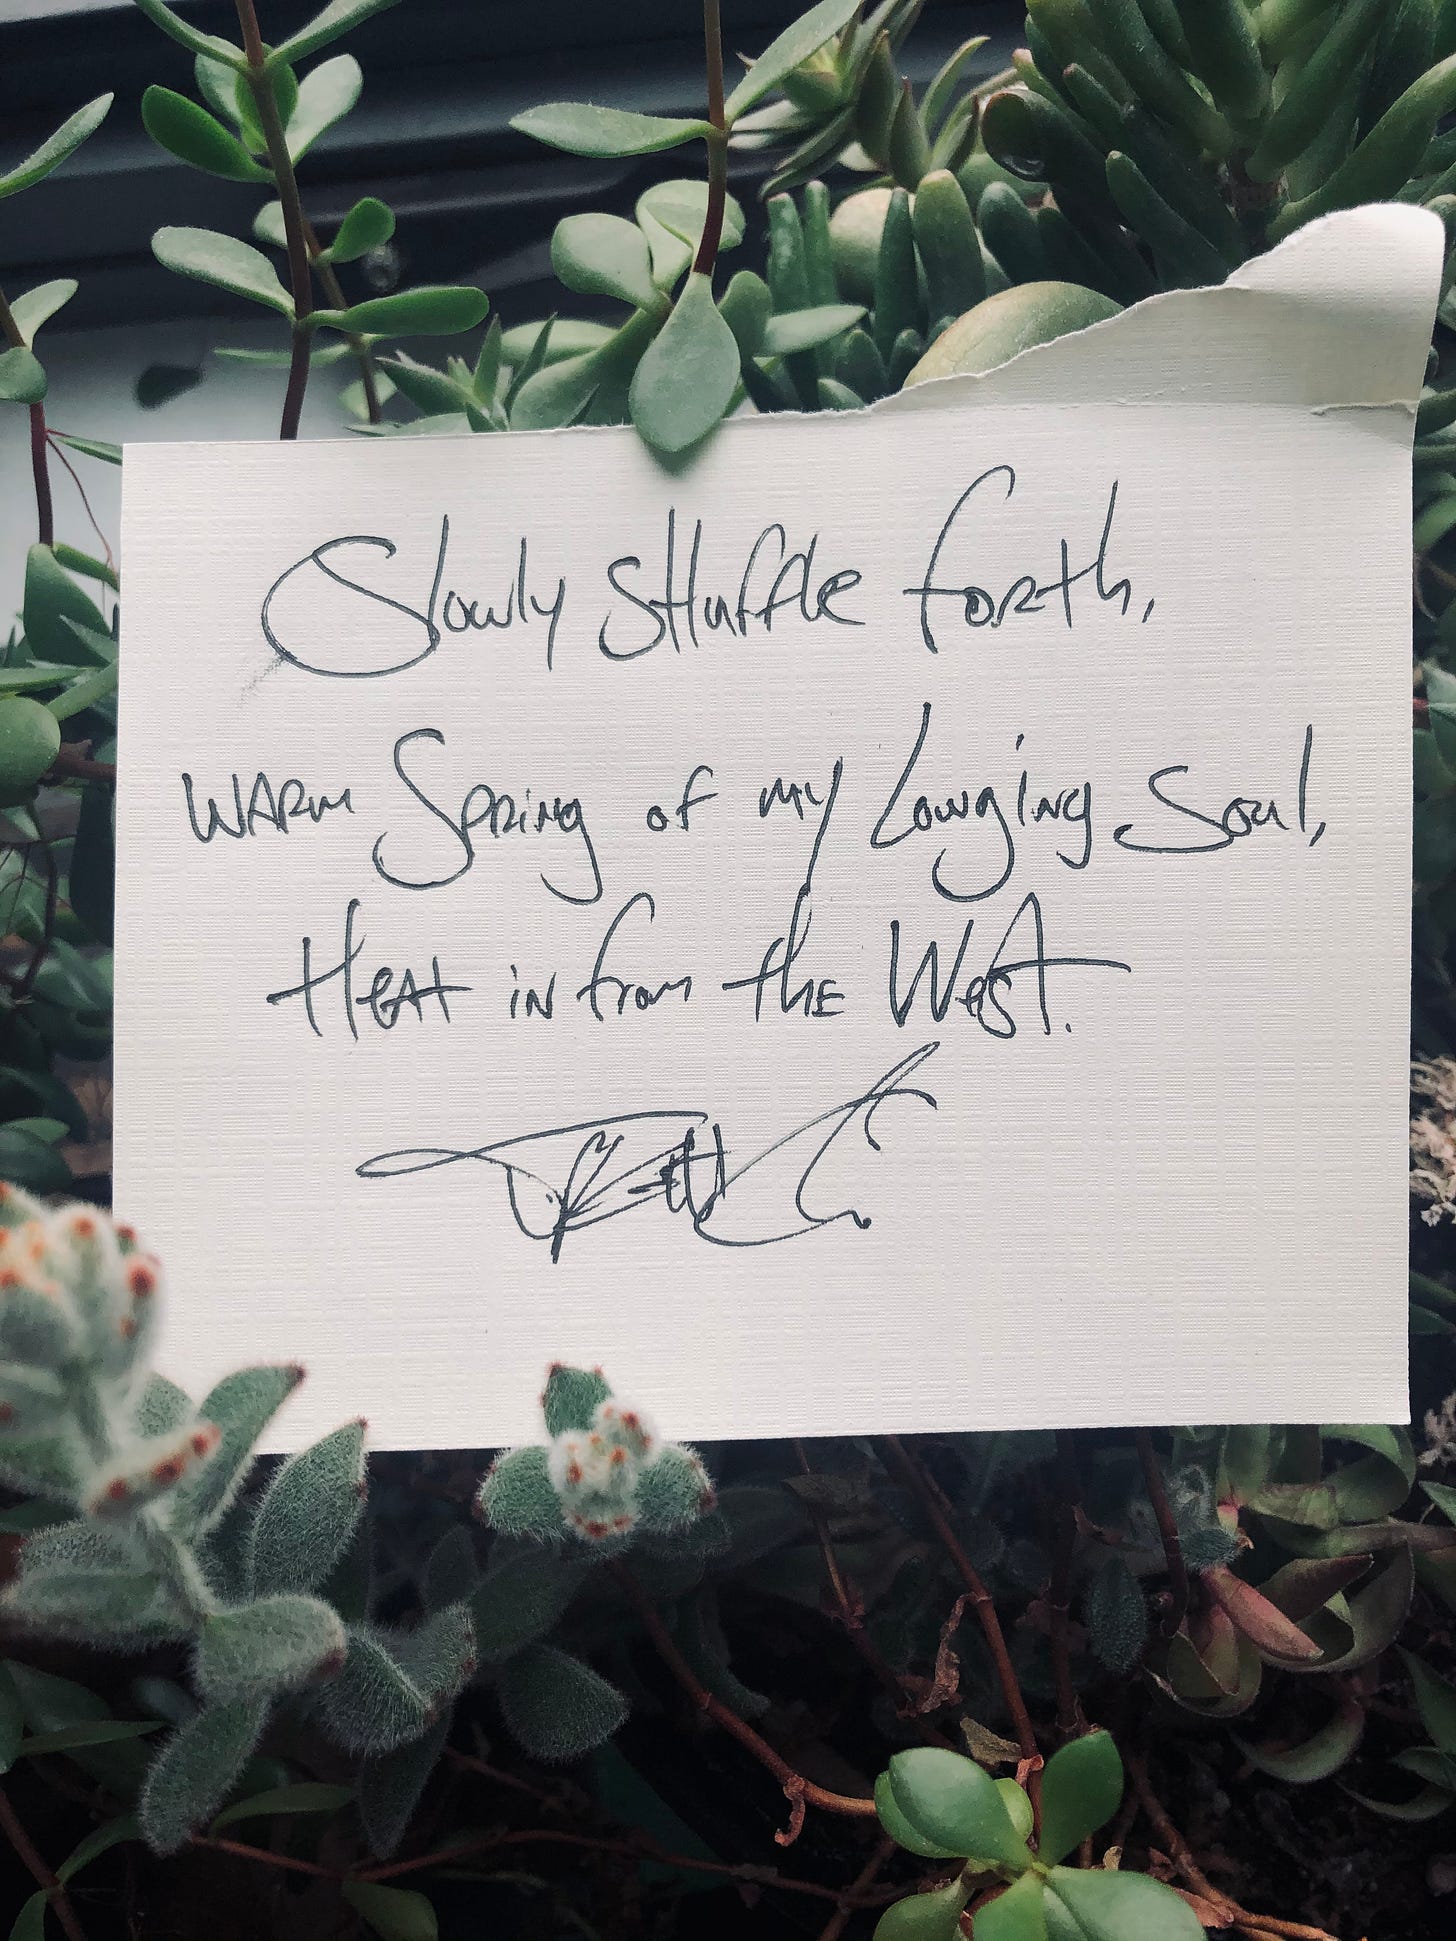 Slowly sHuffle forth,
WARM Spring of my Longing Soul,
HeAt in from thE West.